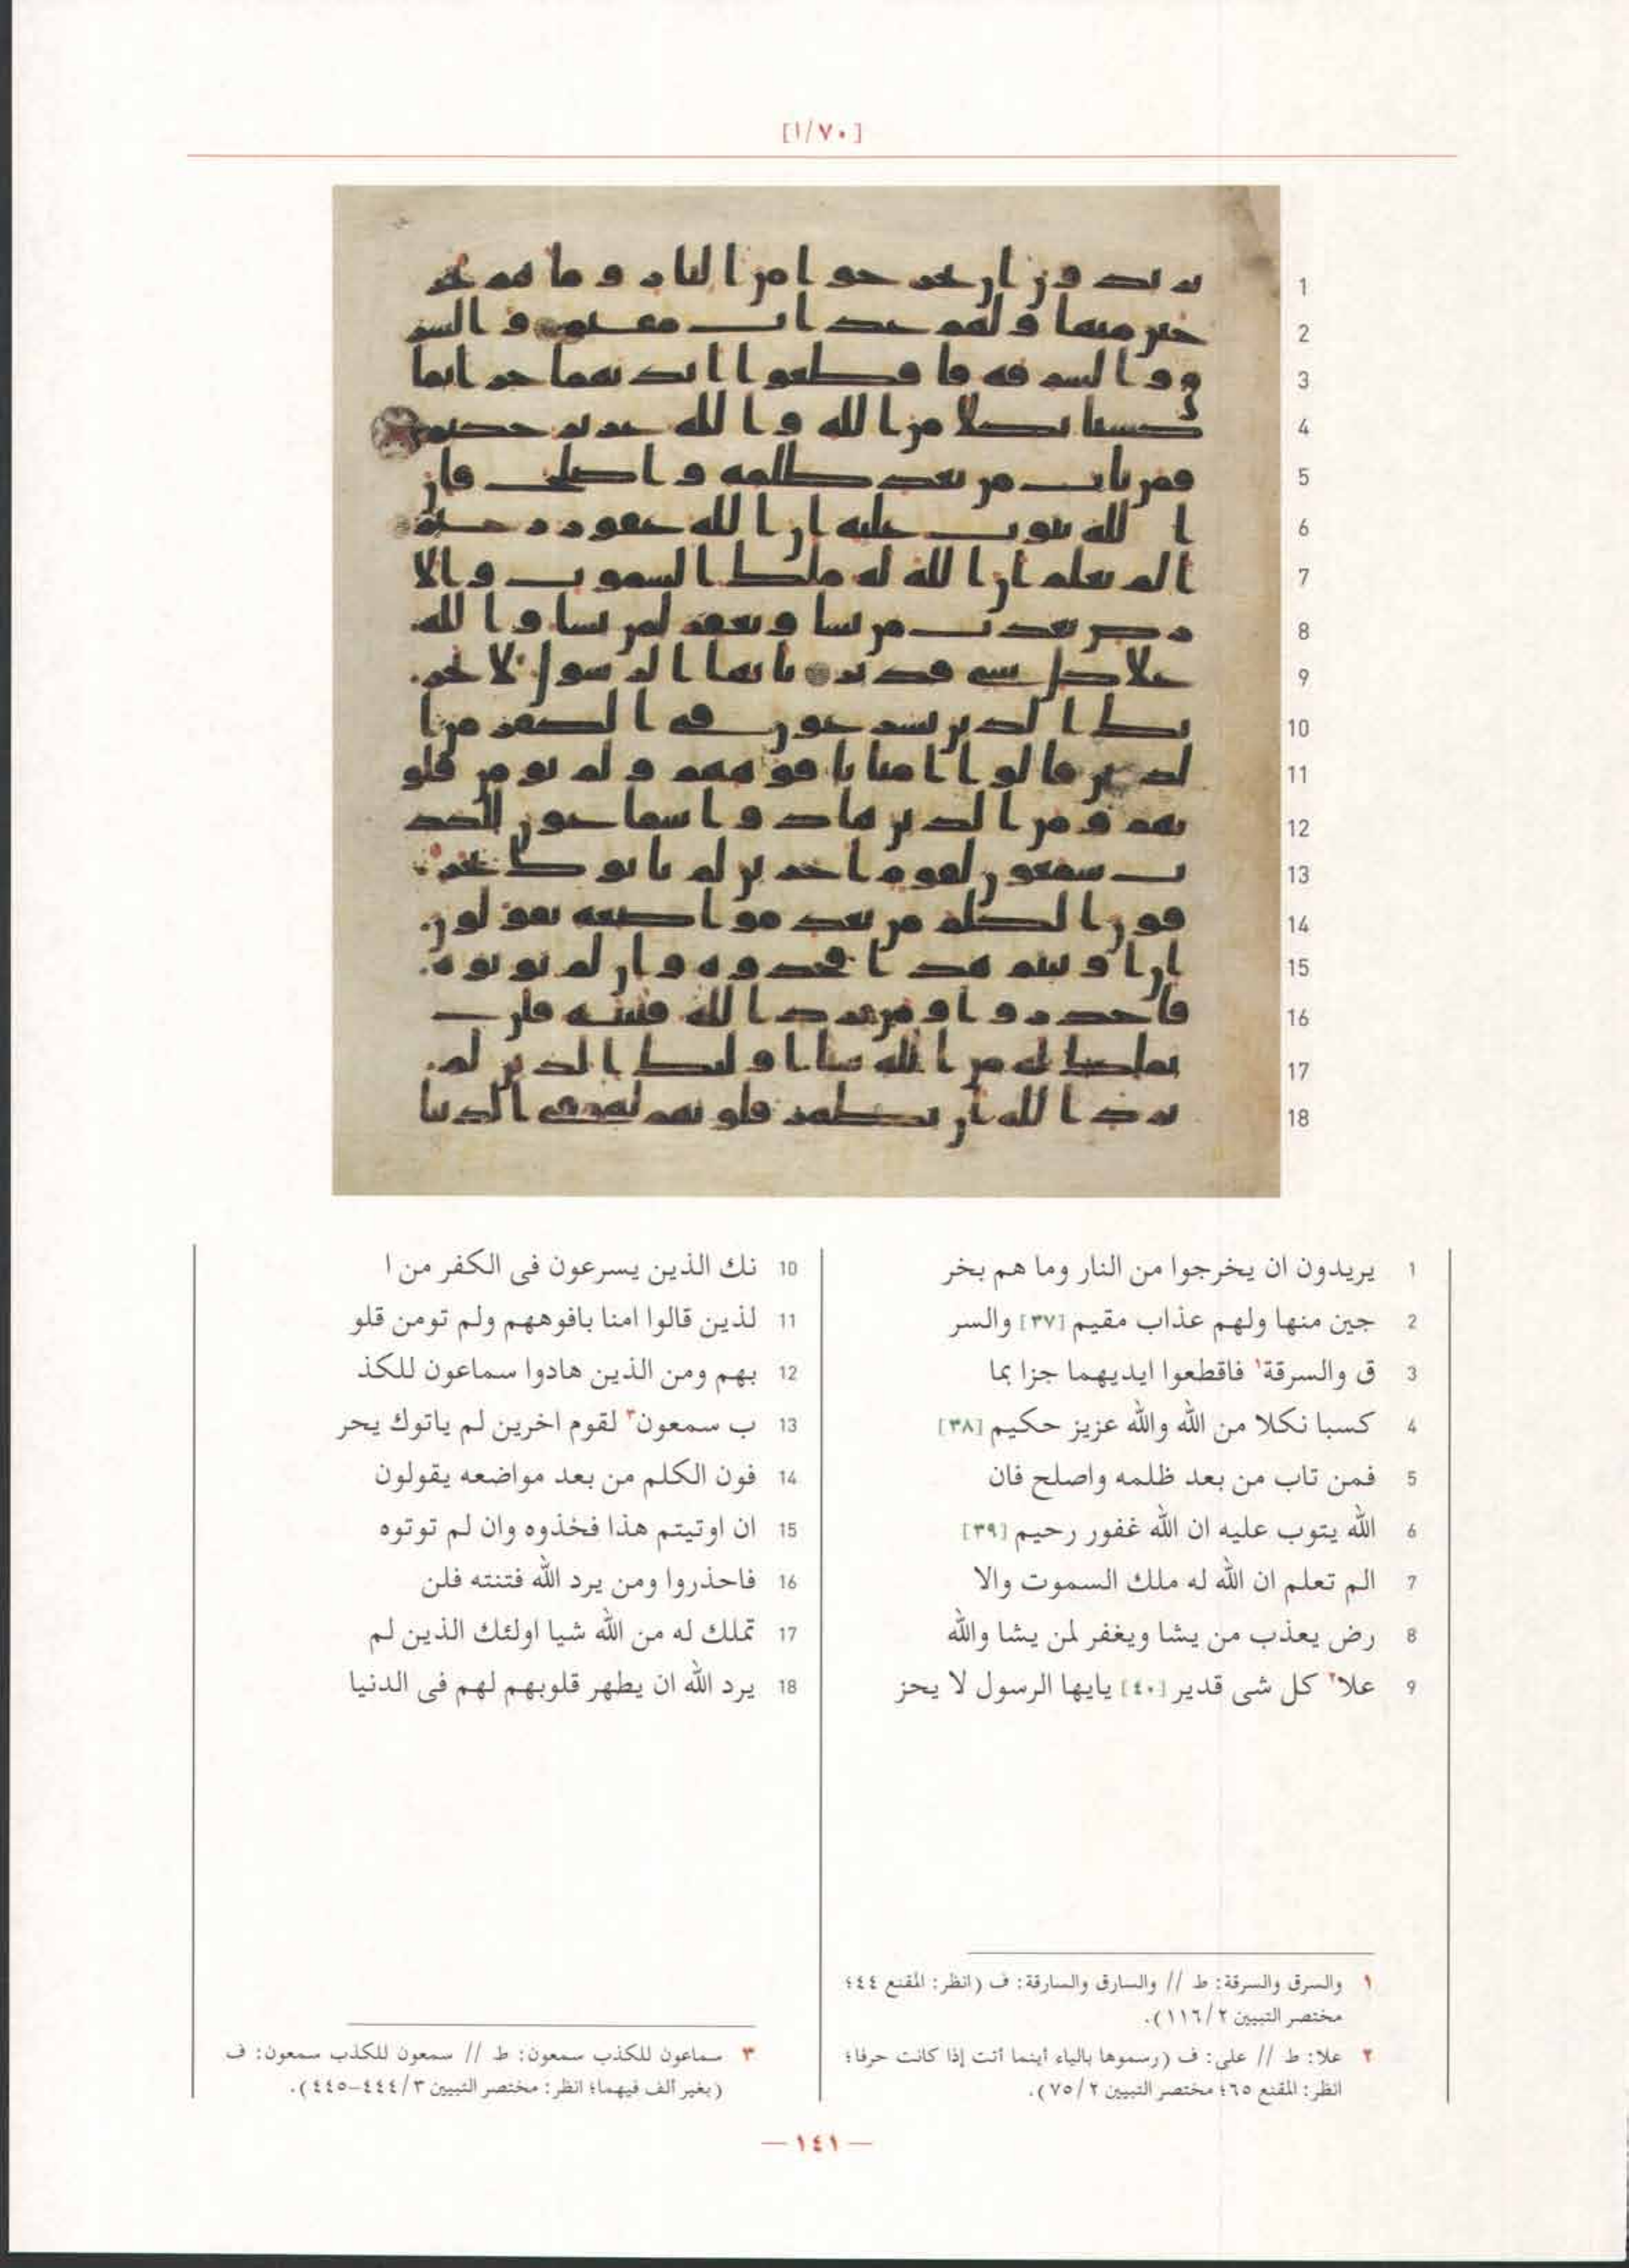 [٧٠/١]
1 يريدون ان يخرجوا من النار وما هم بخر
2 جين منها ولهم عذاب مقيم [٣٧] والسر
3 ق والسرقة١ فاقطعوا ايديهما جزا بما
4 كسبا نكلا من الله والله عزيز حكيم [٣٨]
5 فمن تاب من بعد ظلمه واصلح فان
6 الله يتوب عليه ان الله غفور رحيم [٣٩]
7 الم تعلم ان الله له ملك السموت والا
8 رض يعذب من يشا ويغفر لمن يشا والله
9 علا٢ كل شى قدير [٤٠] يايها الرسول لا يحز
10 نك الذين يسرعون فى الكفر من ا
11 لذين قالوا امنا بافوههم ولم تومن قلو
12 بهم ومن الذين هادوا سماعون للكذ
13 ب سمعون٣ لقوم اخرين لم ياتوك يحر
14 فون الكلم من بعد مواضعه يقولون
15 ان اوتيتم هذا فخذوه وان لم توتوه
16 فاحذروا ومن يرد الله فتنته فلن
17 تملك له من الله شيا اولئك الذين لم
18 يرد الله ان يطهر قلوبهم لهم فى الدنيا
١ والسرق والسرقة: ط // والسارق والسارقة: ف (انظر: المقنع ٤٤؛
مختصر التبيين ١١٦/٢).
٢ علا: ط // على: ف (رسموها بالياء أينما أتت إذا كانت حرفا؛
انظر: المقنع ٦٥؛ مختصر التبيين ٧٥/٢).
٣ سماعون للكذب سمعون: ط // سمعون للكذب سمعون: ف
(بغير ألف فيهما؛ انظر: مختصر التبيين ٤٤٤/٣-٤٤٥).
— ١٤١ —